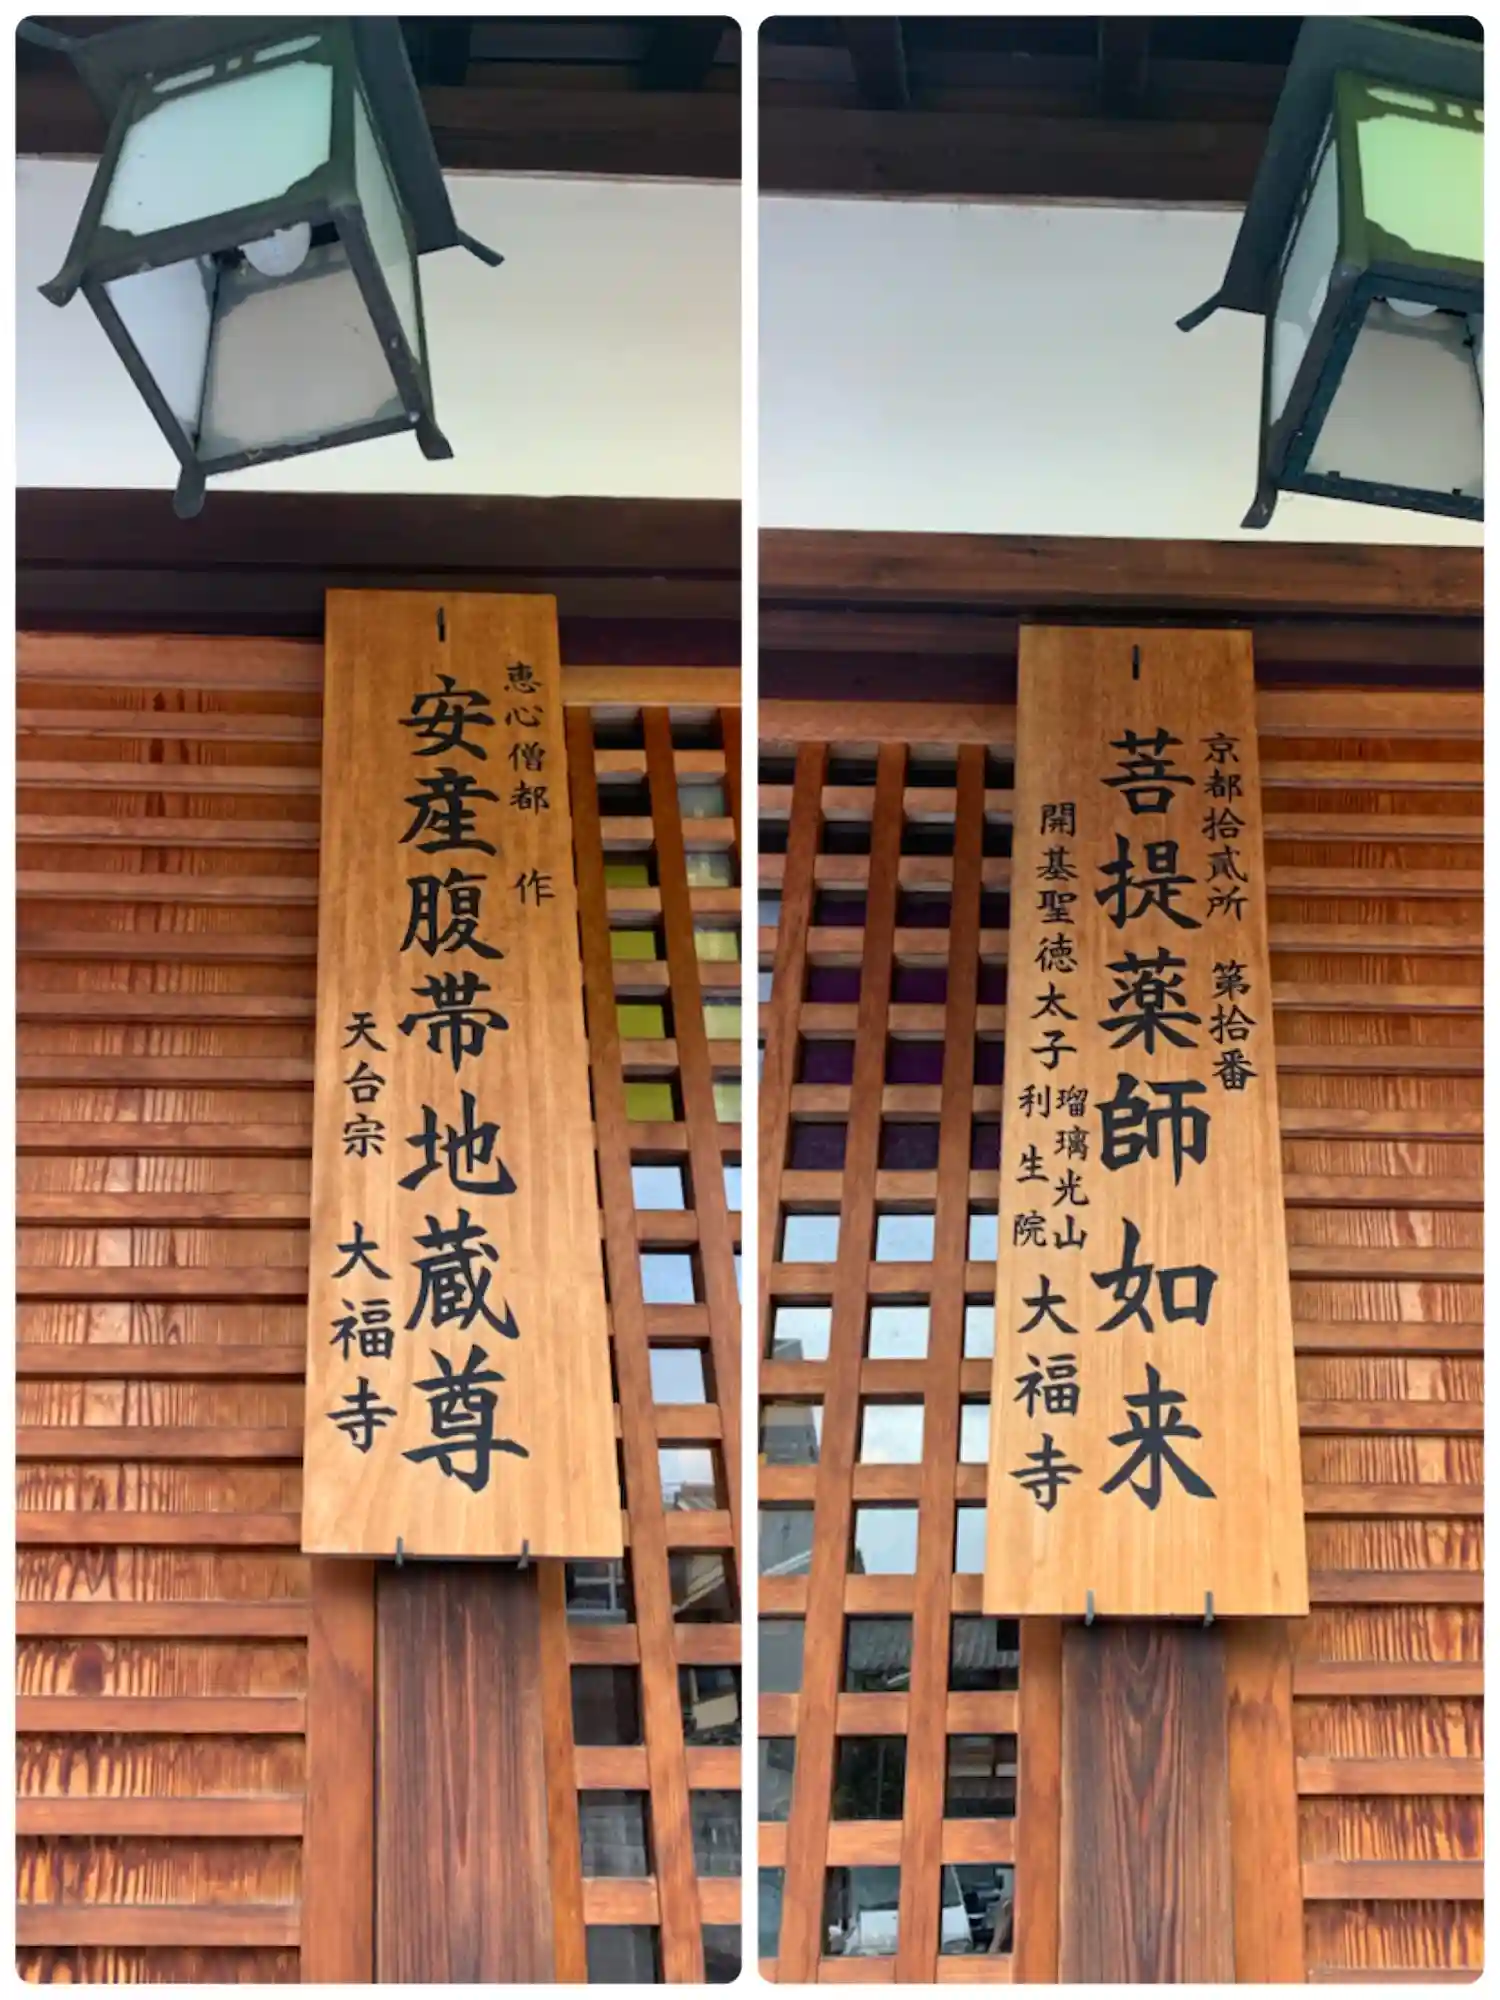 恵心僧都 作
安産腹帯地蔵尊
天台宗 大福寺
京都拾貳所 第拾番
菩提薬師如来
開基聖徳太子
瑠璃光山
利生院
大福寺